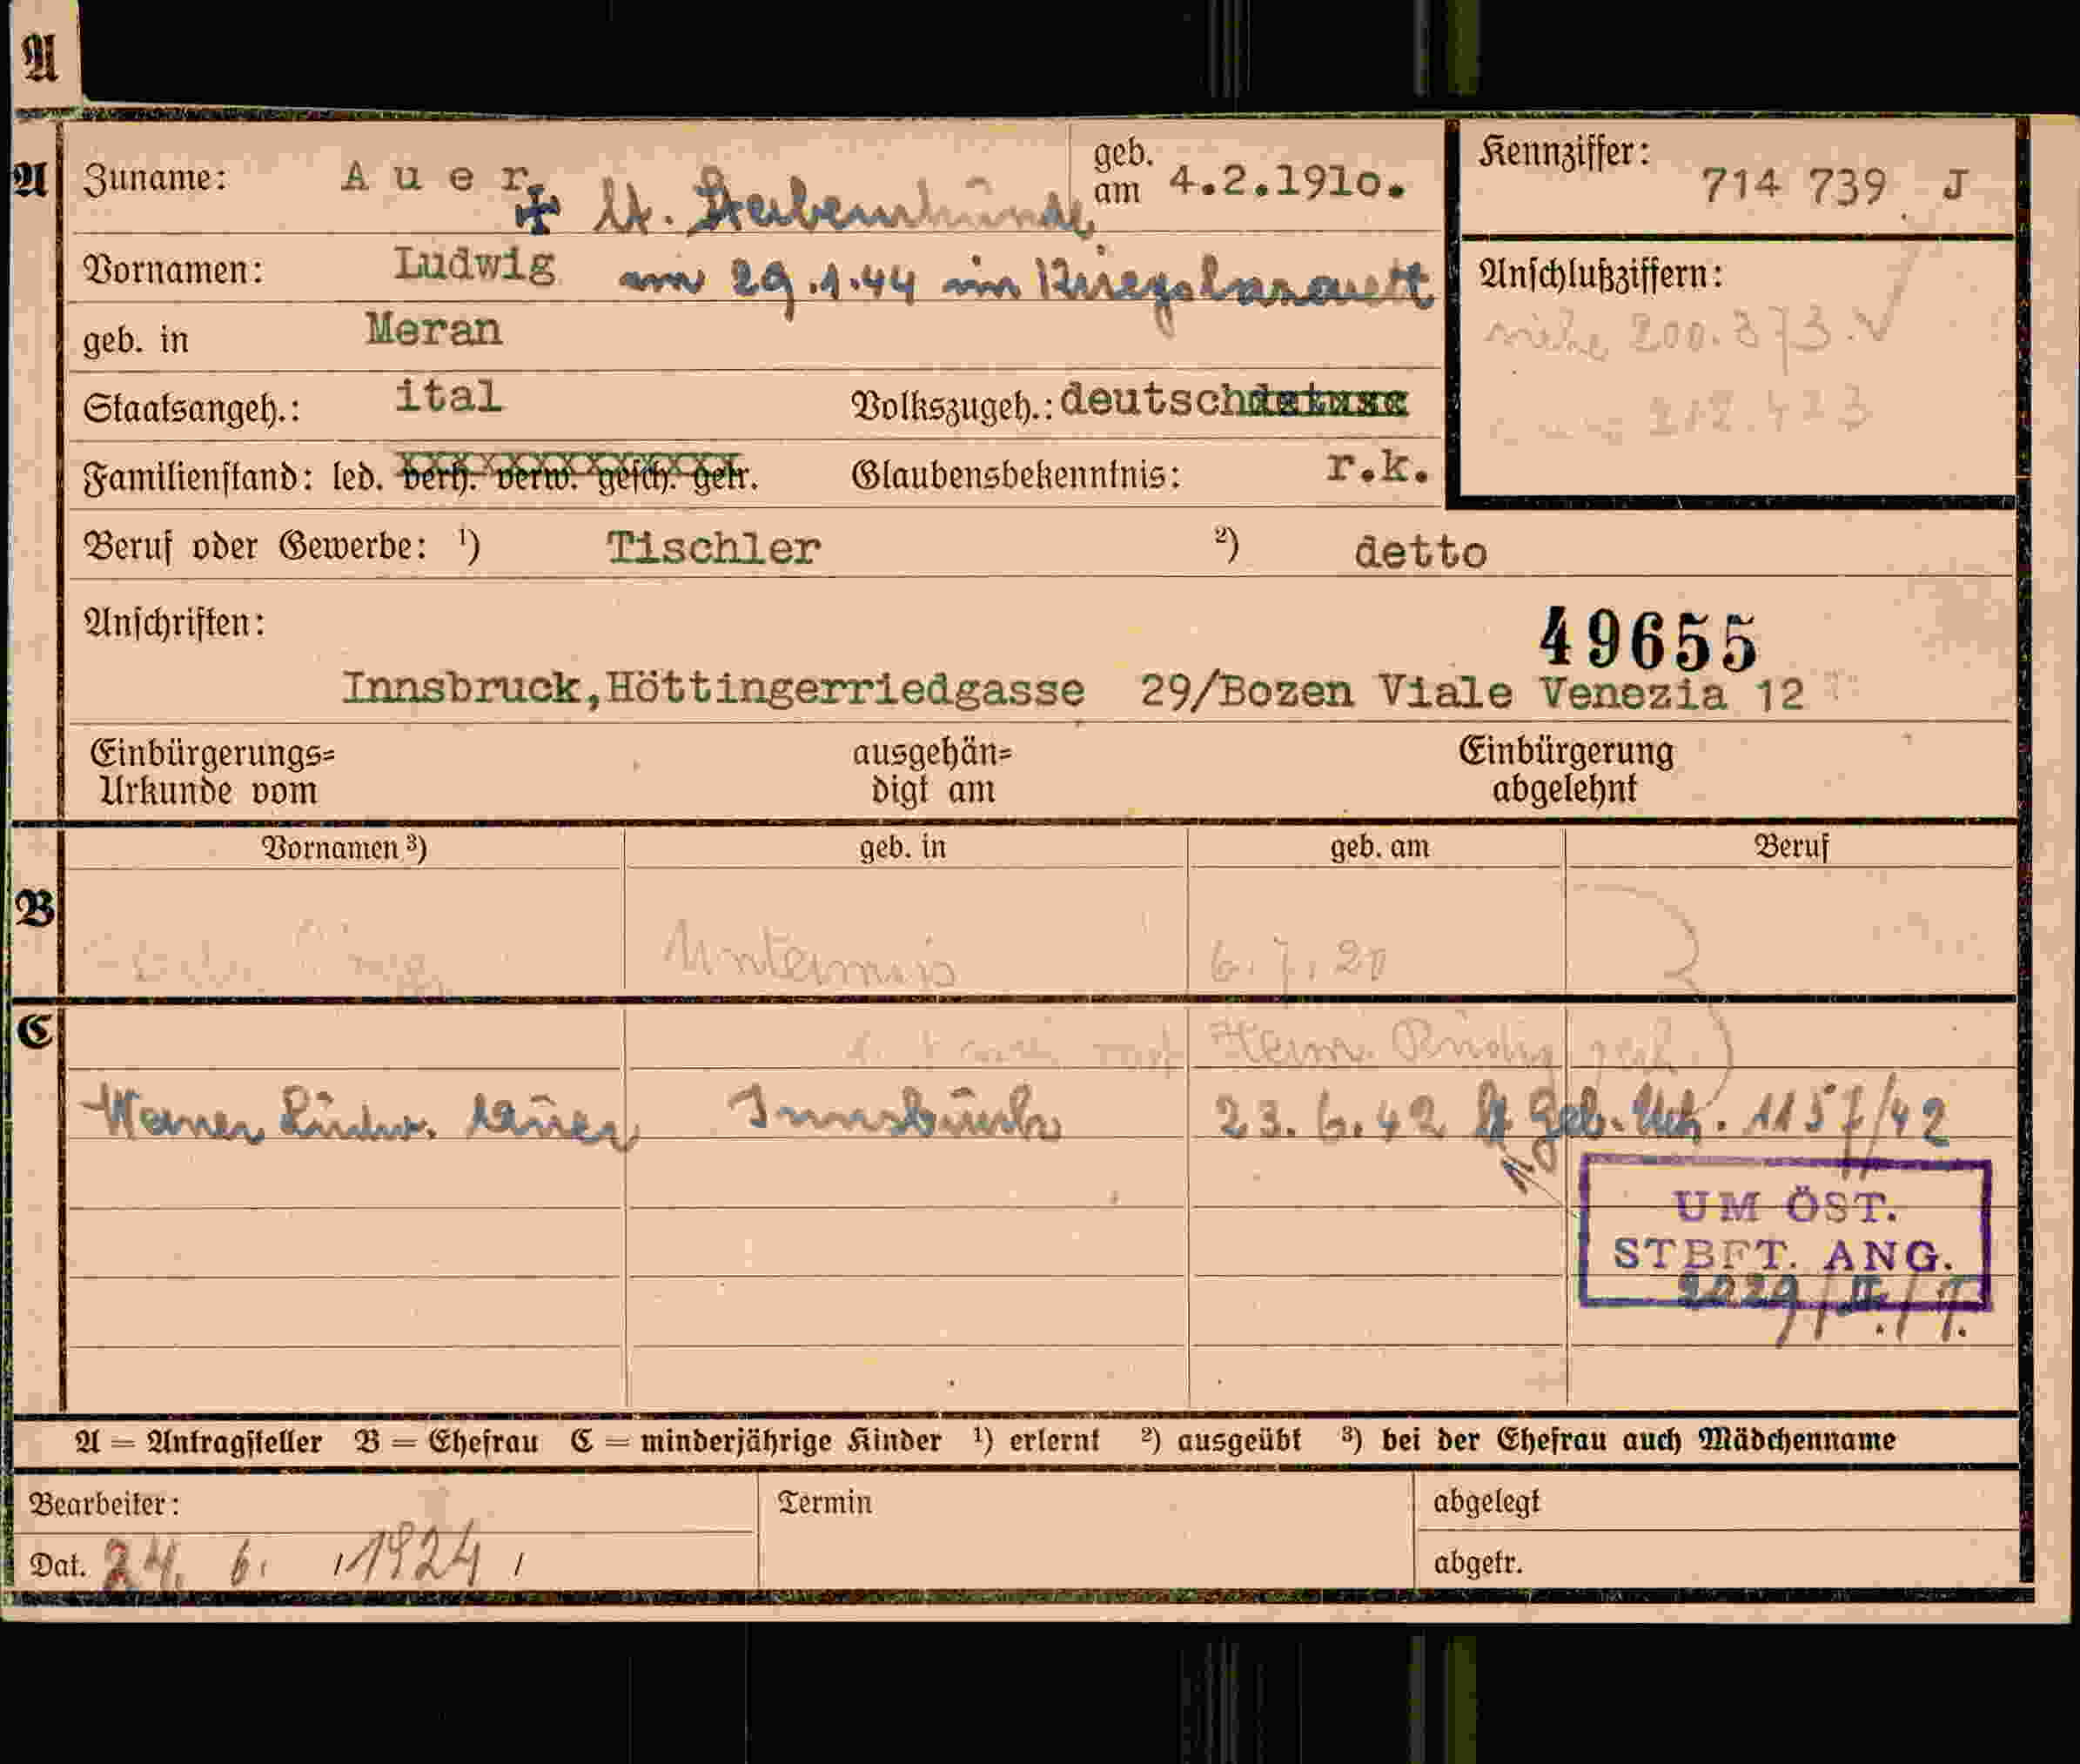 A
A Zuname: Auer geb. am 4.2.1910. Kennziffer: 714 739 J
✠ lt. Sterbeurkunde
Vornamen: Ludwig am 29.1.44 im Kriegslazarett Anschlußziffern:
geb. in Meran siehe 200.373.
Staatsangeh.: ital Volkszugeh.: deutsch 212.423
Familienstand: led. verh. verw. gesch. getr. Glaubensbekenntnis: r.k.
Beruf oder Gewerbe: ¹) Tischler ²) detto
Anschriften: 49655
Innsbruck,Höttingerriedgasse 29/Bozen Viale Venezia 12
Einbürgerungs= Urkunde vom ausgehän= digt am Einbürgerung abgelehnt
Vornamen ³) geb. in geb. am Beruf
B 6.7.20
C
Werner Ludw. Auer Innsbruck 23.6.42 lt Geb. Urk. 1157/42
UM ÖST.
STBFT. ANG.
2229/II./T.
A = Antragsteller B = Ehefrau C = minderjährige Kinder ¹) erlernt ²) ausgeübt ³) bei der Ehefrau auch Mädchenname
Bearbeiter: Termin abgelegt
Dat. 24. 6. /1924/ abgetr.